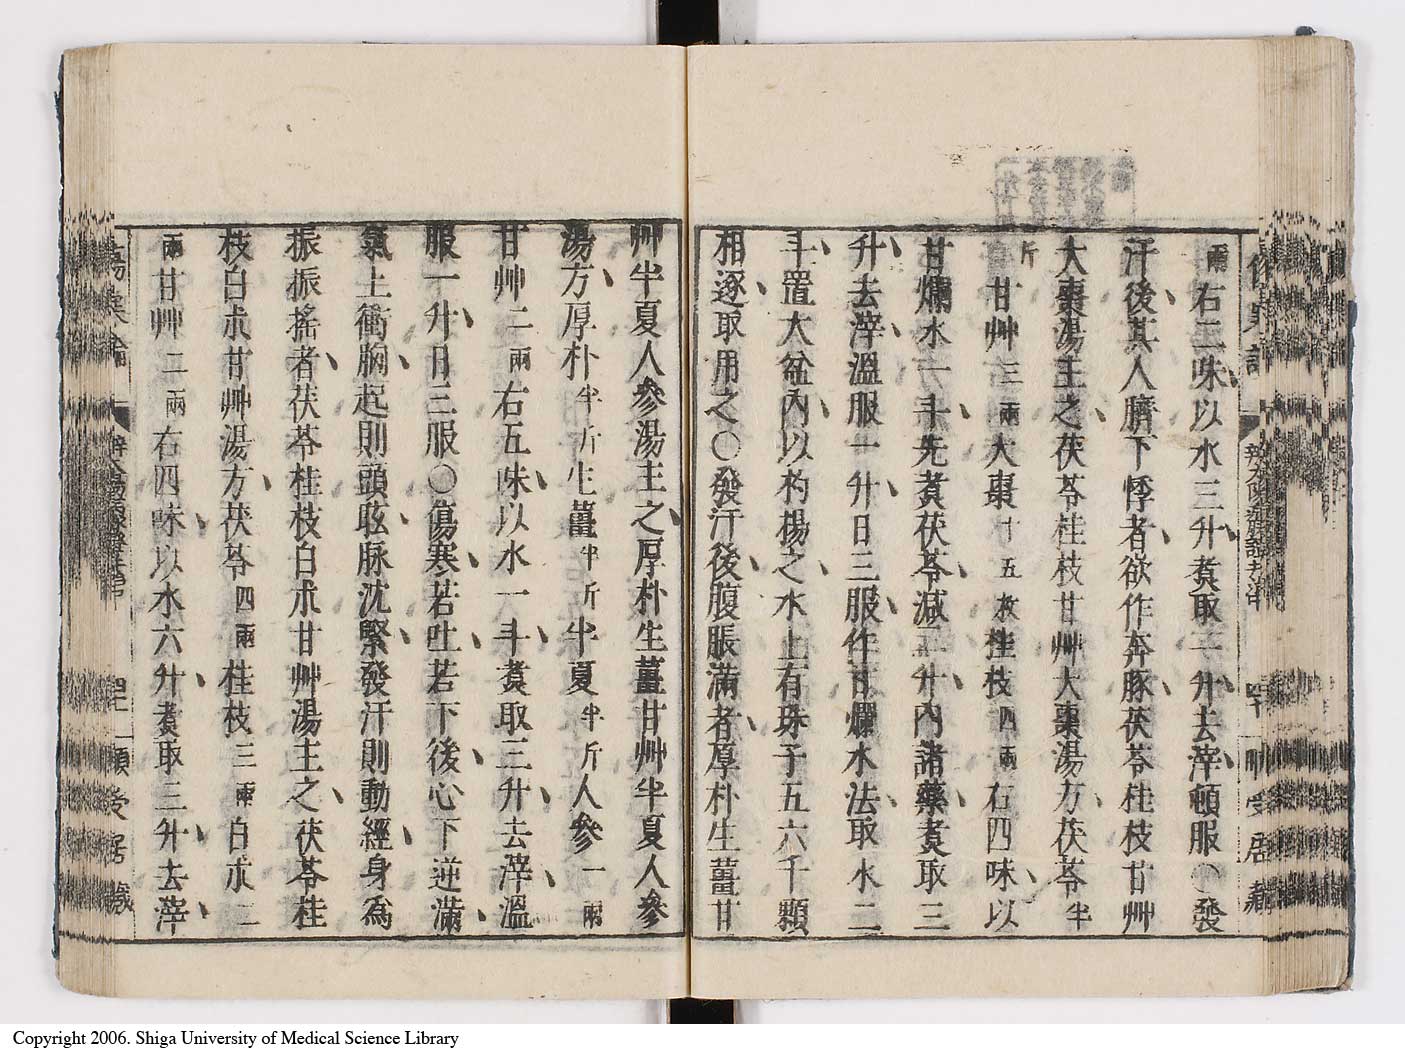 兩右二味以水三升煑取一升去滓頓服○發
汗後其人臍下悸者欲作奔豚茯苓桂枝甘艸
大棗湯主之茯苓桂枝甘艸大棗湯方茯苓半
斤甘艸三兩大棗十五枚桂枝四兩右四味以
甘爛水一斗先煑茯苓減二升內諸藥煑取三
升去滓溫服一升日三服作甘爛水法取水二
斗置大盆內以杓揚之水上有珠子五六千顆
相逐取用之○發汗後腹脹滿者厚朴生薑甘
艸半夏人參湯主之厚朴生薑甘艸半夏人參
湯方厚朴半斤生薑半斤半夏半斤人參一兩
甘艸二兩右五味以水一斗煑取三升去滓溫
服一升日三服○傷寒若吐若下後心下逆滿
氣上衝胸起則頭眩脉沈緊發汗則動經身爲
振振搖者茯苓桂枝白朮甘艸湯主之茯苓桂
枝白朮甘艸湯方茯苓四兩桂枝三兩白朮二
兩甘艸二兩右四味以水六升煑取三升去滓
Copyright 2006. Shiga University of Medical Science Library